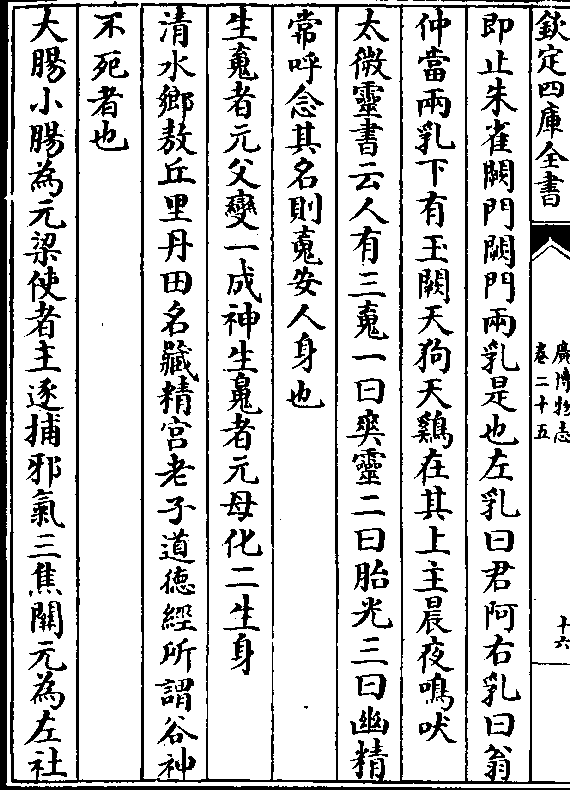 欽定四庫全書
廣博物志
卷二十五
十六
即止朱雀闕門闕門兩乳是也左乳曰君阿右乳曰翁
仲當兩乳下有玉闕天狗天鷄在其上主晨夜鳴吠
太微靈書云人有三䰟一曰爽靈二曰胎光三曰幽精
常呼念其名則䰟安人身也
生䰟者元父變一成神生䰟者元母化二生身
清水鄉敖丘里丹田名藏精宮老子道德經所謂谷神
不死者也
大腸小腸為元梁使者主逐捕邪氣三焦關元為左社